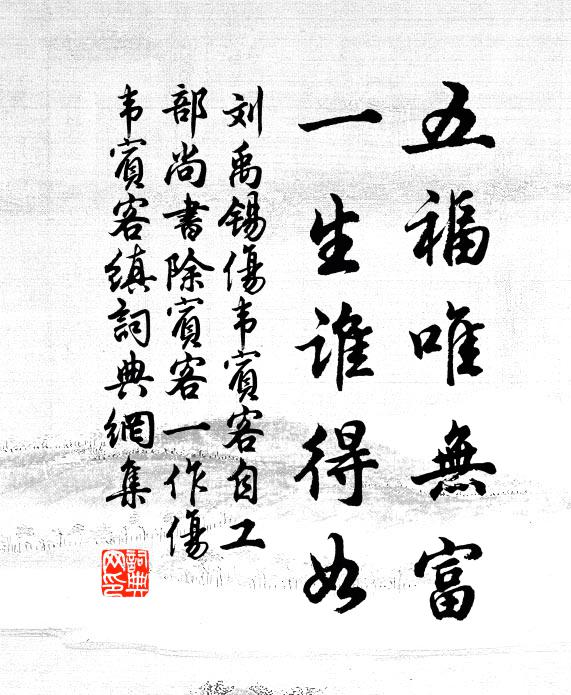 五福唯無富
一生誰得如
刘禹錫傷韦賓客自工
部尚書除賓客一作傷
韦賓客缜詞典網集
詞典网印